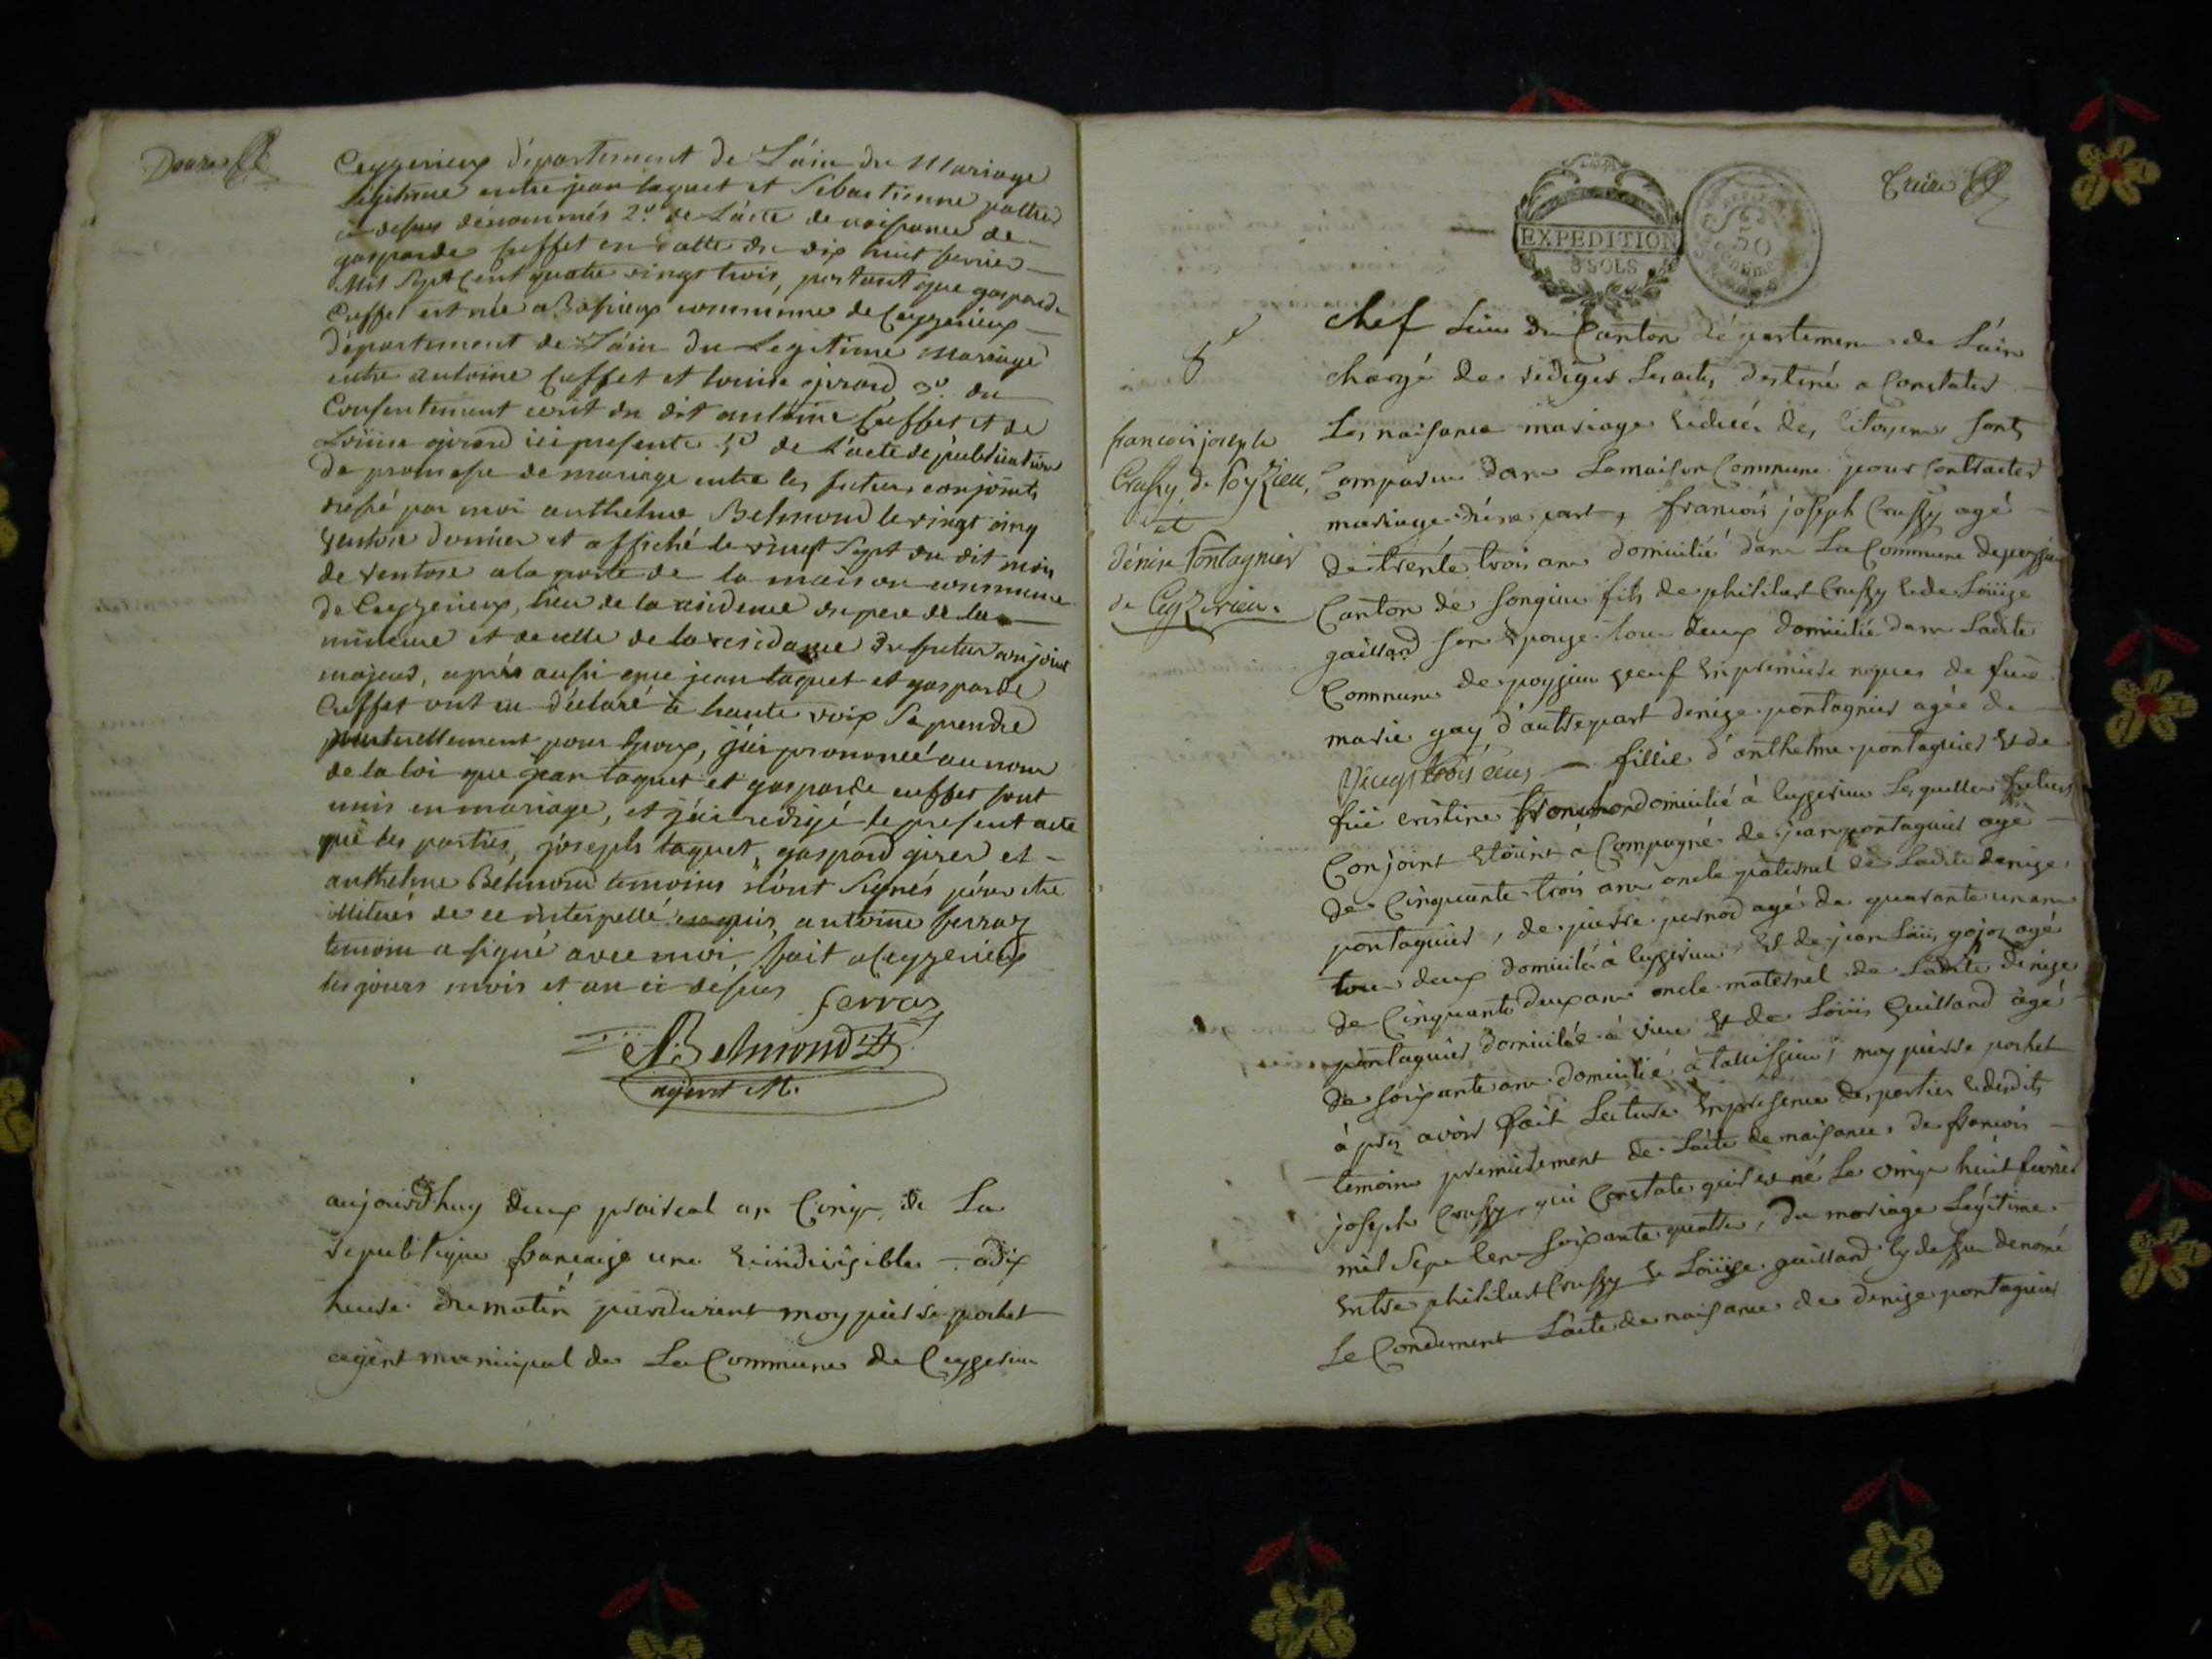 Douze
Ceyzerieux département de L'áin du Mariage
légitime entre jean taquet et Sébastienne
ci desus dénommés 2.o de L'ácte de naissance de
gasparde Cuffet en datte du dix huit fevrier
Mil Sept Cent quatre vingt trois, portant que gasparde
Cuffet est née a commune de Ceyzerieux
département de L'áin du Legitime Mariage
entre antoine Cuffet et louise girard, 3.o du
Consentement écrit du dit antoine Cuffet et de
Loüise girard ici presente de L'acte de publication
de promesse de mariage entre les futurs conjoints
dressé par moi anthelme Belmond le vingt cinq
ventose dernier et affiché le vingt Sept du dit mois
de ventose a la porte de la maison commune
de Ceyzerieux, lieu de la résidence du pere de la
mineure et de celle de la residance du futur conjoint
majeur, aprés aussi que jean taquet et gasparde
Cuffet ont eu déclaré a haute voix Se prendre
mutuellement pour Epoux, j'ai prononcé au nom
de la loi que jean taquet et gasparde cuffet sont
unis en mariage, et j'ai redigé le present acte
que les parties, joseph taquet, gaspard girer et
anthelme Belmond temoins n'ont Signés pour etre
illiterés de ce interpellé antoine ferraz
temoin a signé avec moi, fait a Ceyzerieux
les jours mois et an ci desus
ferraz
Belmond
agent M.
aujourdhuy deux prairial an Cinq de La
republique francaise une & indivisible a dix
heure du matin pardevant moy pierre pochet
agent municipal de La Commune de Ceyzerieu
Treize
EXPEDITION
8 SOLS
50
Centime
8e
francois joseph
Crussy de Poyzieu,
et
dénise Pontagnier
de Ceyzerieu.
chef Lieu du Canton département de L'áin
chargé de rediger Les actes destiné a Constater
Les naisance mariage & décés des Citoyens sont
Comparu dans La maison Commune pour Contracter
mariage d'une part, francois joseph Crussy agé
de trente trois ans domicilié dans La Commune de poyzieu
Canton de Songieu fils de philibert Crussy & de Loüise
gaillard son Epouze tous deux domicilié dans Ladite
Commune de poyzieu veuf en premiere nopces de fuë
marie gay d'autre part denize pontagnier agée de
vingt trois ans — fillie d'anthelme pontagnier & de
fuë cristine domicilié à Ceyzerieu Lesquelles futurs
Conjoint étoint a Compagné de jean pontagnier agé
de Cinquante trois ans oncle paternel de Ladite denize
pontagnier, de pierre pernod agé de quarante un ans
tous deux domicilié à Ceyzerieu, & de jean Loüis gojoz agé
de Cinquante deux ans oncle maternel de Ladite denize
pontagnier domicilié à vieu & de Loüis Guilland agé
de soixante ans domicilié à talissieu, moy pierre pochet
à pres avoir fait Lecture En presence des parties & desdits
temoins premierement de L'ácte de naisance de francois
joseph Crussy qui Constate quil est né Le vingt huit fevrier
mil Sept Cent soixante quattre, du mariage Légitime
entre philibert Crussy & Loüise gaillard cy dessus denomé
Secondement L'acte de naisance de denize pontagnier